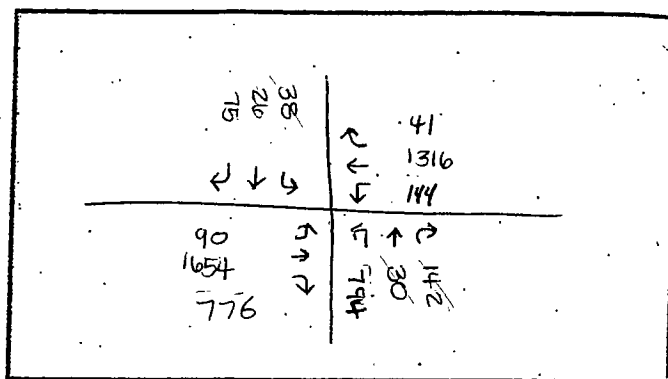 75 26 38
41
1316
144
90
1654
776
794 30 142